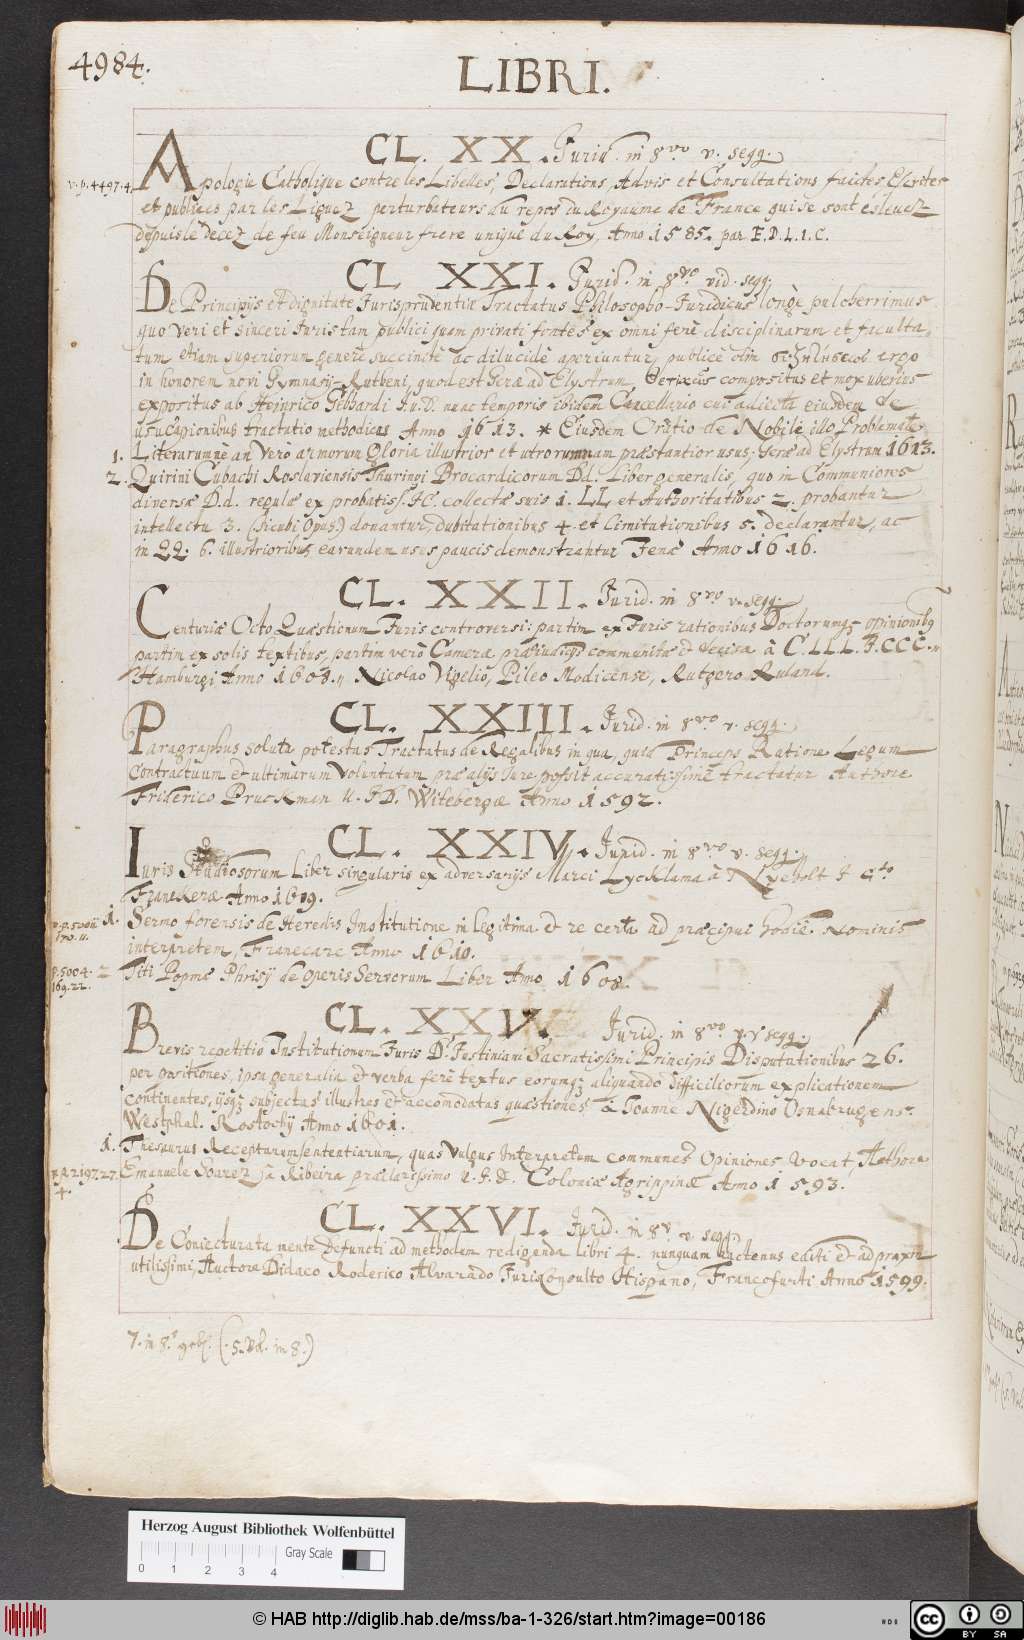 4984.
LIBRI.
CL. XX. Jurid. in 8vo v. seqq.
v. p. 4497. 4.
Apologie Catholique contre les Libelles, Declarations, Advis et Consultations faictes Escrites
et publiees par les Liguez perturbateurs du repos du Royaume de France qui se sont éslevez
depuis le decez de feu Monseigneur frere unique du Roy, Anno 1585. par E.D.L.I.C.
CL XXI. Jurid. in 8vo vid. seqq.
De Principijs et dignitate Jurisprudentiæ Tractatus Philosopho-Juridicus longè pulcherrimus
quo veri et sinceri Juris tam publici quam privati fontes ex omni ferè disciplinarum et faculta-
tum etiam superiorum genere succinctè ac dilucidè aperiuntur, publicè olim ergo
in honorem novi Gymnasij Rutheni, quod est Geræ ad Elystrum, compositus et mox uberius
expositus ab Heinrico Gebhardi J.u.D. nunc temporis ibidem Cancellario cui adiecta eiusdem de
usucapionibus tractatio methodica Anno 1613. * Eiusdem Oratio de Nobili illo Problemate
1. Literarumne an vero armorum Gloria illustrior et utrorumnam præstantior usus; Geræ ad Elystrum 1613.
2. Quirini Cubachi Roslaviensis Thuringi Brocardicorum Dd. Liber generalis, quo in Communiores
diversæ D.d. regulæ ex probatiss. JC. collectæ suis 1. LL et Authoritatibus 2. probantur
intellectu 3. (sicubi Opus) donantur, dubitationibus 4. et limitationibus 5. declarantur, ac
in QQ. 6. illustrioribus earundem usus paucis demonstrantur Jenæ Anno 1616.
CL. XXII. Jurid. in 8vo v. seqq.
Centuriæ Octo Quæstionum Juris controversi: partim ex Juris rationibus Doctorumq; opinionibq
partim ex solis textibus, partim verò Cameræ præiudicijs communita et decisa à C.LLL.J.CCC.
Hamburgi Anno 1608. Nicolao Vigelio, Pileo Modicense, Rutgero Ruland.
CL. XXIII. Jurid. in 8vo v. seqq.
Paragraphus soluta potestas Tractatus de Regalibus in qua, quid Princeps Ratione Legum
Contractuum et ultimarum Voluntatum præ alijs Jure possit accuratissimè tractatur Authore
Friderico Pruckman u.J.D. Witebergæ Anno 1592.
CL. XXIV. Jurid. in 8vo v. seqq.
Iuris Studiosorum Liber singularis ex adversarijs Marci Lycklama à Nyeholt J Cto
Franekeræ Anno 1609.
1. Sermo forensis de Heredis Institutione in legitima et re certa ad præcipui hodiè Nominis
interpretem, Franecaræ Anno 1610.
p. 5004. 169. 22.
2 Titi Popmæ Phrisij de operis Servorum Liber Anno 1608.
CL. XXV. Jurid. in 8vo p. v seqq.
Brevis repetitio Institutionum Juris D. Justiniani Sacratissimi Principis Disputationibus 26.
per positiones, ipsa generalia et verba ferè textus eorumq; aliquando difficiliorum explicationem
continentes, ijsq; subjectas illustres et accomodatas quæstiones à Joanne Nigerdino Osnabrugens.
Westphal. Rostochij Anno 1601.
1. Thesaurus Receptarum sententiarum, quas vulgus Interpretum communes Opiniones vocat, Authore
p. 2197. 27. 4.
Emanuele Soarez à Ribeira præclarissimo u.J.D. Coloniæ Agrippinæ Anno 1593.
CL. XXVI. Jurid. in 8v. v. seqq.
De Coniecturata mente Defuncti ad methodum redigenda libri 4. nunquam hactenus editi et ad praxin
utilissimi, Auctore Didaco Roderico Alvarado Jurisconsulto Hispano, Francofurti Anno 1599.
7. in 8º geb. (. 5. Vol. in 8.)
Herzog August Bibliothek Wolfenbüttel
Gray Scale
0 1 2 3 4
© HAB http://diglib.hab.de/mss/ba-1-326/start.htm?image=00186
cc BY SA